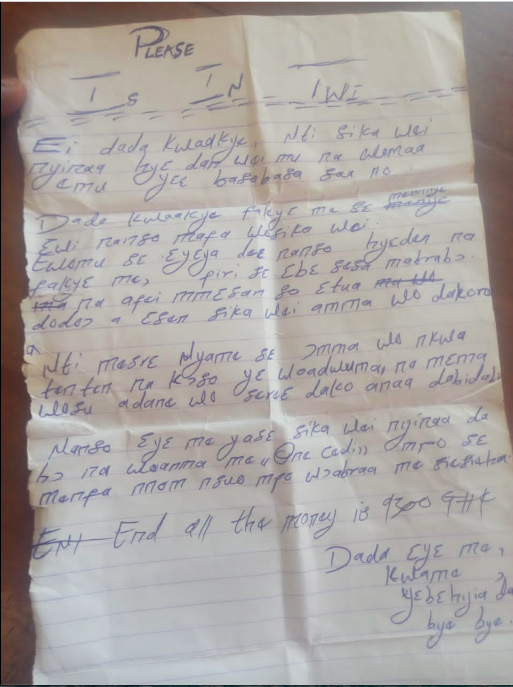 PLEASE
Is In Twi
Ei dada kwadkye, Nti sika wei
nyinaa hye dan wei mu na womaa
emu yɛɛ basabasa saa no
Dada kwaakye fakye me sɛ memmu
Ewi nanso mafa wosika wei.
Ewomu sɛ Eyɛya deɛ nanso hyeden na
fakye me, piri sɛ Ebɛ sesa mabrabɔ.
na afei mmɛsan so Etua
dodoɔ a Esen sika wei amma wo dakoro
a
Nti mesrɛ Nyame sɛ ɔmma wo nkwa
tenten na kɔso yɛ woadwuma, na menma
wosu adane wo serɛɛ dako anaa dabidabi
Nanso Eyɛ me ya sɛ sika wei nyinaa da
hɔ na woanma me "One cedi" mpo sɛ
memfa nnom nsuo mpo wɔabraa me
End all the money is GH¢
Dada Eyɛ me,
kwame
yɛbɛhyia da
bye bye.